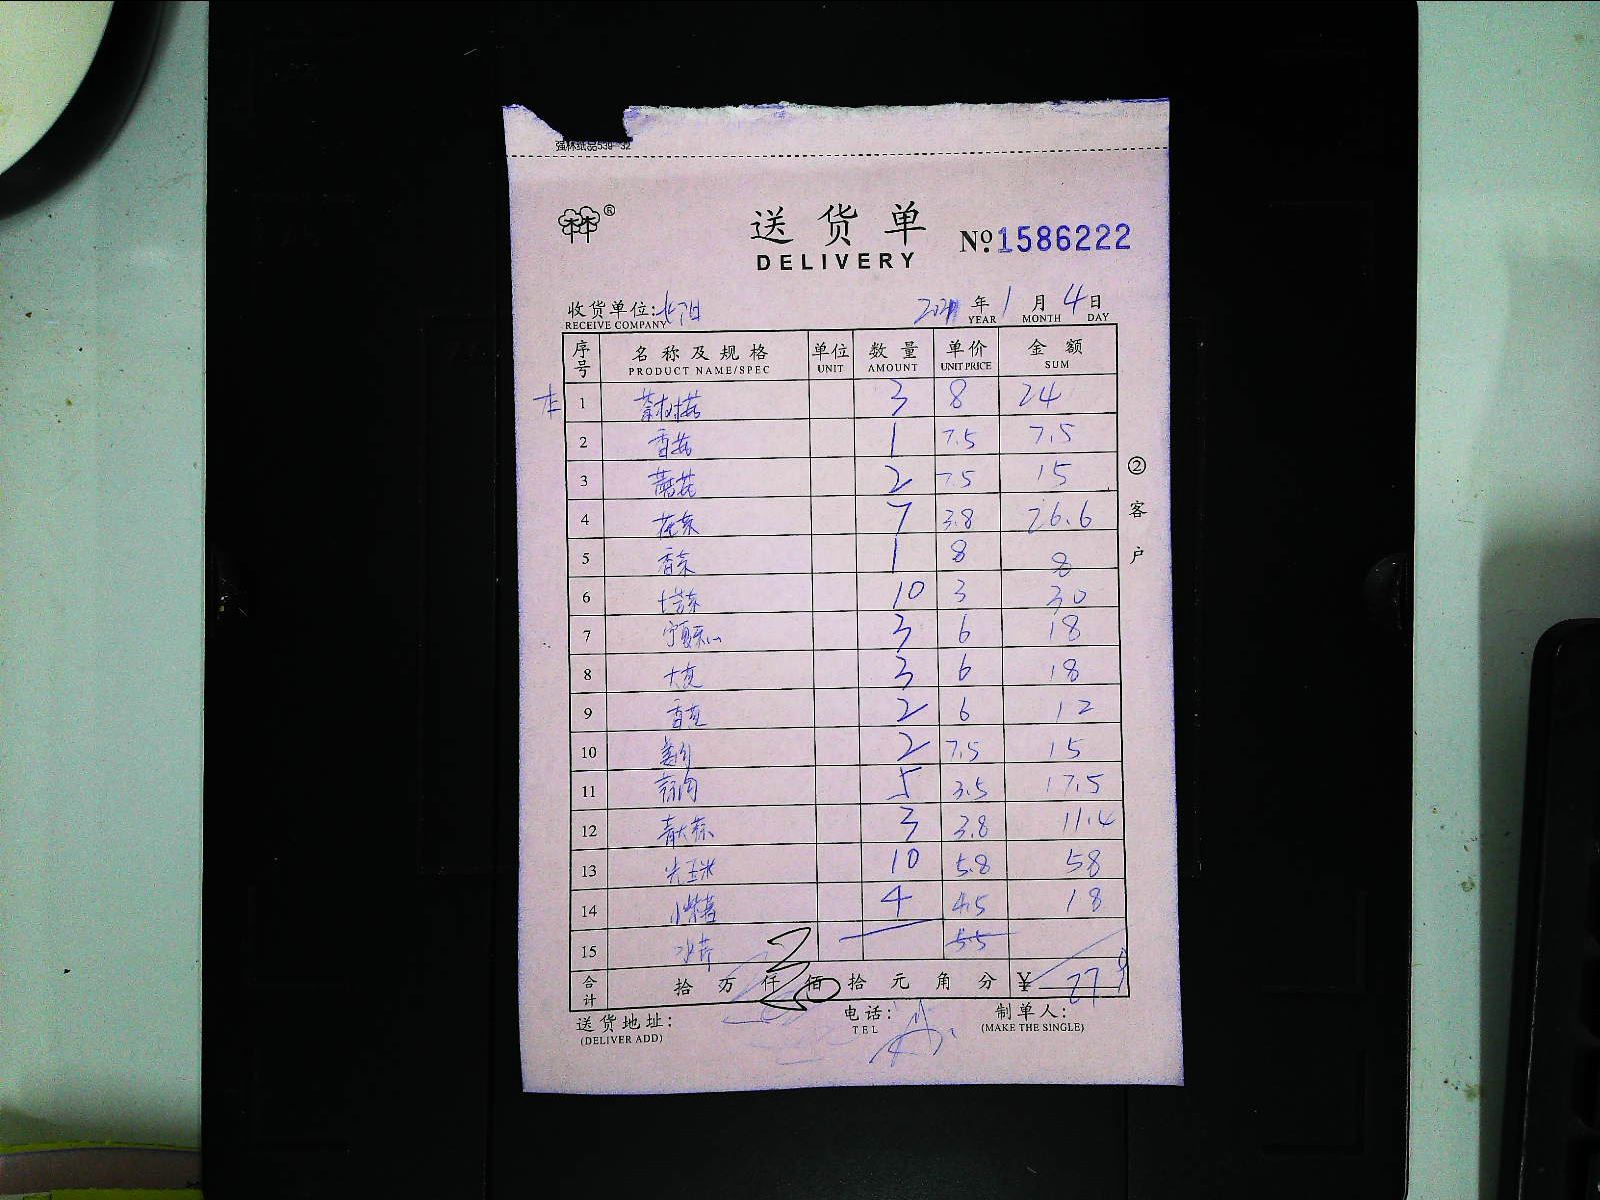 强林纸品539-32
®
送货单
№ 1586222
DELIVERY
收货单位: 年 1 月 4 日
RECEIVE COMPANY YEAR MONTH DAY
序号 名称及规格 单位 数量 单价 金额
PRODUCT NAME/SPEC UNIT AMOUNT UNIT PRICE SUM
1 茶树菇 3 8 24
2 香菇 1 7.5 7.5
3 蘑菇 2 7.5 15
4 花菜 7 3.8 26.6
5 香菜 1 8 8
6 10 3 30
7 宁夏菜心 3 6 18
8 大葱 3 6 18
9 香葱 2 6 12
10 2 7.5 15
11 5 3.5 17.5
12 3 3.8 11.4
13 玉米 10 5.8 58
14 小紫薯 4 4.5 18
15 水芹 5.5
合计 拾 万 仟 佰 拾 元 角 分 ¥ 279
② 客户
送货地址: 电话: 制单人:
(DELIVER ADD) TEL (MAKE THE SINGLE)